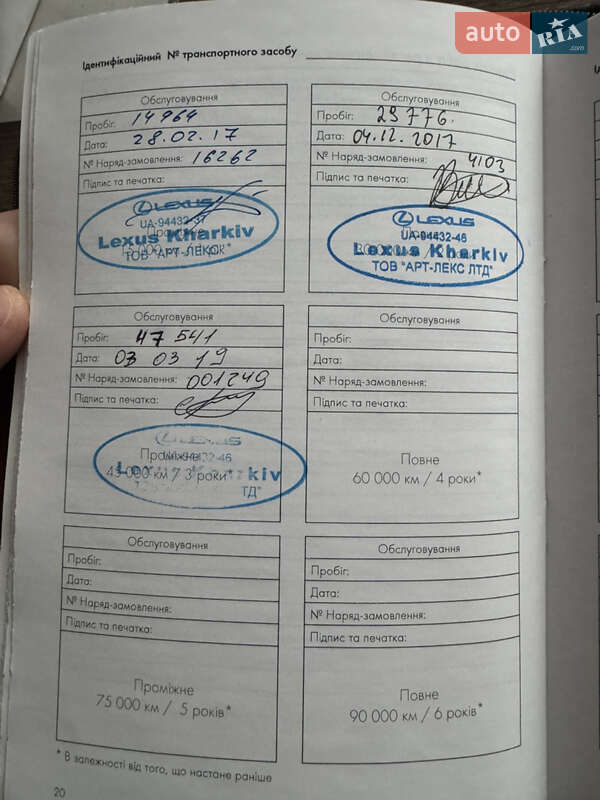 auto RIA.com
Ідентифікаційний № транспортного засобу
Обслуговування
Пробіг: 14964
Дата: 28.02.17
№ Наряд-замовлення: 16262
Підпис та печатка:
LEXUS
UA-94432-37
Lexus Kharkiv
ТОВ "АРТ-ЛЕКС"
Обслуговування
Пробіг: 29776.
Дата: 04.12.2017
№ Наряд-замовлення: 4103
Підпис та печатка:
LEXUS
UA-94432-46
Lexus Kharkiv
ТОВ "АРТ-ЛЕКС ЛТД"
Обслуговування
Пробіг: 47 541
Дата: 03 03 19
№ Наряд-замовлення: 001249
Підпис та печатка:
LEXUS
Проміжне
UA-94432-46
45 000 км / 3 роки*
Lexus Kharkiv
ЛТД"
Обслуговування
Пробіг:
Дата:
№ Наряд-замовлення:
Підпис та печатка:
Повне
60 000 км / 4 роки*
Обслуговування
Пробіг:
Дата:
№ Наряд-замовлення:
Підпис та печатка:
Проміжне
75 000 км / 5 років*
Обслуговування
Пробіг:
Дата:
№ Наряд-замовлення:
Підпис та печатка:
Повне
90 000 км / 6 років*
* В залежності від того, що настане раніше
20